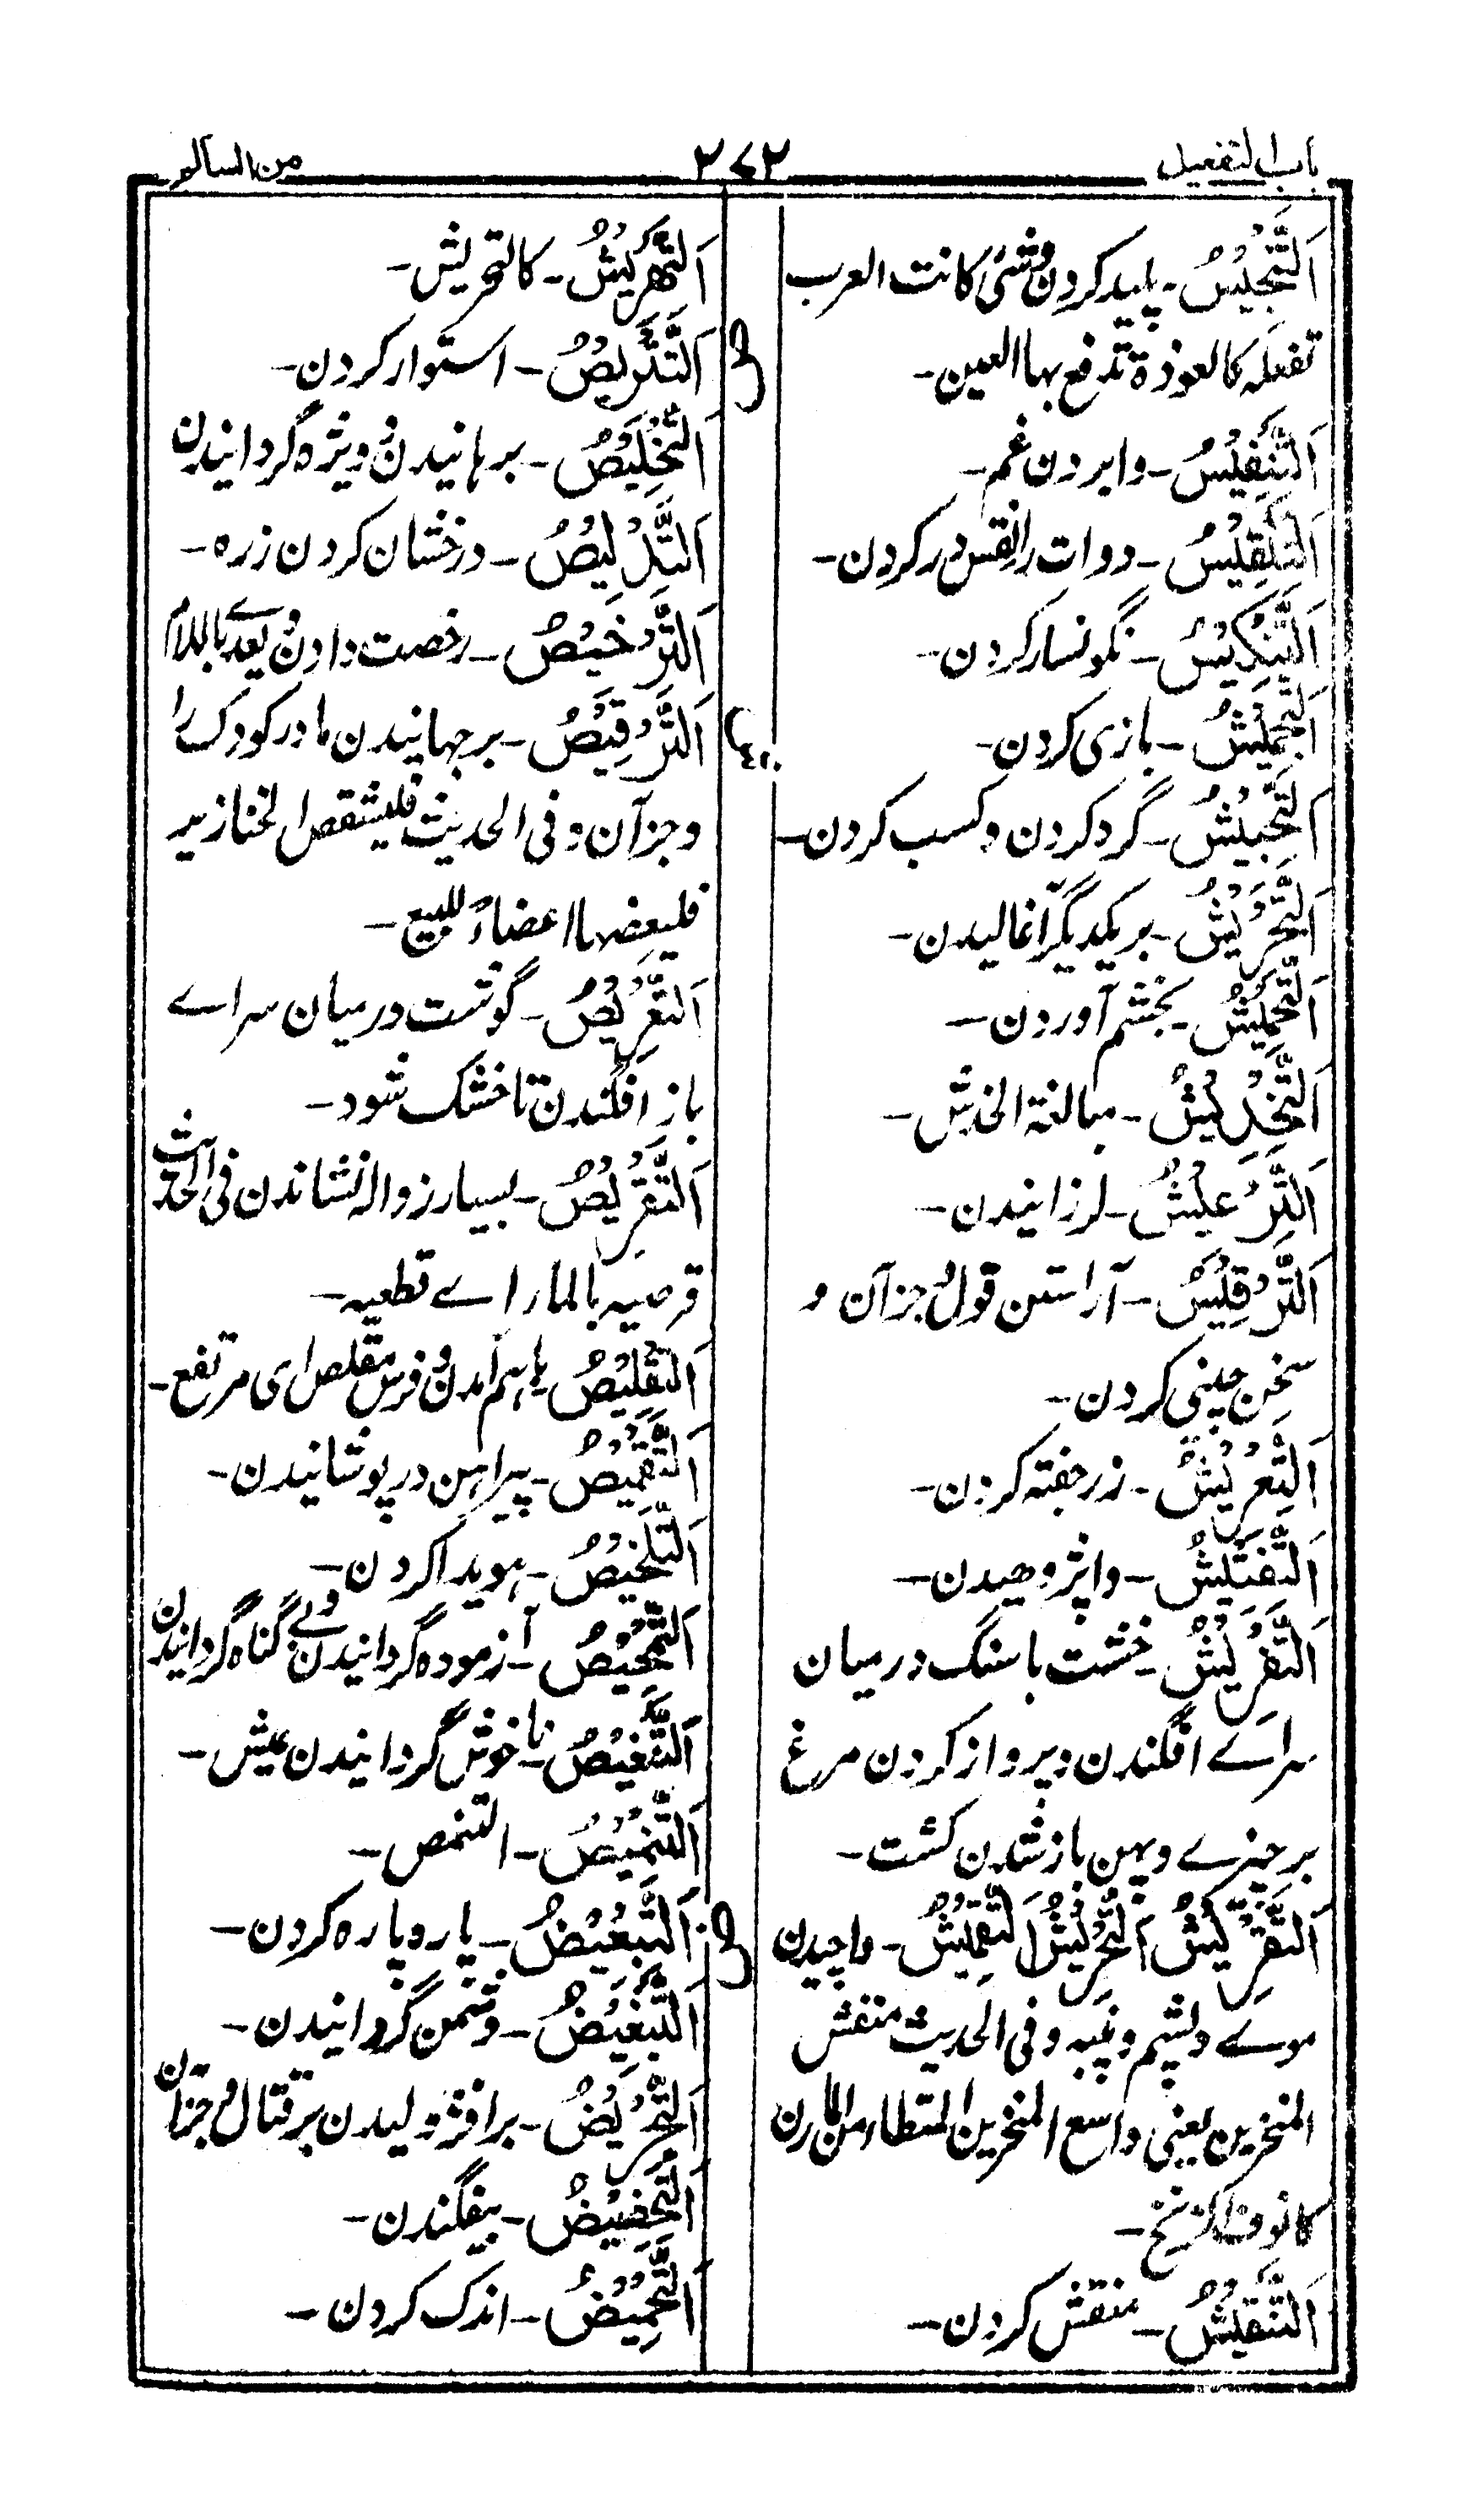 باب التفعیل
۲۷۲
من السالم
اَلتَّنْجِیْسُ۔ پلید کردن وشئ کانت العرب
تفعله کالعوذة تدفع بها العین۔
اَلتَّنْفِیْسُ۔ وابردن غم۔
اَلتَّنْقِیْسُ۔ دوات را نقس در کردن۔
اَلتَّنْکِیْسُ۔ نگونسار کردن۔
اَلتَّجْمِیْشُ۔ بازی کردن۔
اَلتَّحْبِیْشُ۔ گرد کردن و کسب کردن۔
اَلتَّحْرِیْشُ۔ بریکدیگر آغالیدن۔
اَلتَّحْمِیْشُ۔ بخشم آوردن۔
اَلتَّخْدِیْشُ۔ مبالغة الخدش۔
اَلتَّرْعِیْشُ۔ لرزانیدن۔
اَلتَّرْقِیْشُ۔ آراستن قول و جزآن و
سخن چینی کردن۔
اَلتَّعْرِیْشُ۔ زر جفته کردن۔
اَلتَّفْتِیْشُ۔ واپژوهیدن۔
اَلتَّفْرِیْشُ۔ خشت با سنگ درمیان
سراے افگندن و پرواز کردن مرغ
بر چیزے و پهن باز شدن کشت۔
اَلتَّقْرِیْشُ اَلتَّحْرِیْشُ اَلتَّقْمِیْشُ۔ واچیدن
موے و پشم و پنبه و فی الحدیث منفش
المنخرین یعنی واسع المنخرین المتطامن المارن
کانوف الزنج۔
اَلتَّنْقِیْشُ۔ منقش کردن۔
اَلتَّهْرِیْشُ۔ کالتحریش۔
ص
اَلتَّتْرِیْصُ۔ استوار کردن۔
اَلتَّخْلِیْصُ۔ برهانیدن و ویژه گردانیدن
اَلتَّدْلِیْصُ۔ درخشان کردن زره۔
اَلتَّرْخِیْصُ۔ رخصت دادن و یعدے باللام
اَلتَّرْقِیْصُ۔ برجهانیدن مادر کودک را
و جزآن و فی الحدیث فلیشقص الخنازیر
فلیعضها اعضاء للبیع۔
اَلتَّعْرِیْصُ۔ گوشت درمیان سراے
باز افگندن تا خشک شود۔
اَلتَّقْرِیْصُ۔ بسیار زواله نشاندن فی الحدیث
قرصیه بالماء اے قطعیه۔
اَلتَّقْلِیْصُ۔ باهم آمدن و فرس مقلص ای مرتفع۔
اَلتَّقْمِیْصُ۔ پیراهن درپوشانیدن۔
اَلتَّلْخِیْصُ۔ هویدا کردن۔
اَلتَّمْحِیْصُ۔ آزموده گردانیدن و بے گناه گردانیدن
اَلتَّنْغِیْصُ۔ ناخوش گردانیدن عیش۔
اَلتَّنْمِیْصُ۔ التنمص۔
ض
اَلتَّبْعِیْضُ۔ پاره پاره کردن۔
اَلتَّبْغِیْضُ۔ دشمن گردانیدن۔
اَلتَّحْرِیْضُ۔ برافژولیدن بر قتال و جزآن
اَلتَّخْفِیْضُ۔ بیفگندن۔
اَلتَّحْمِیْضُ۔ اندک کردن۔